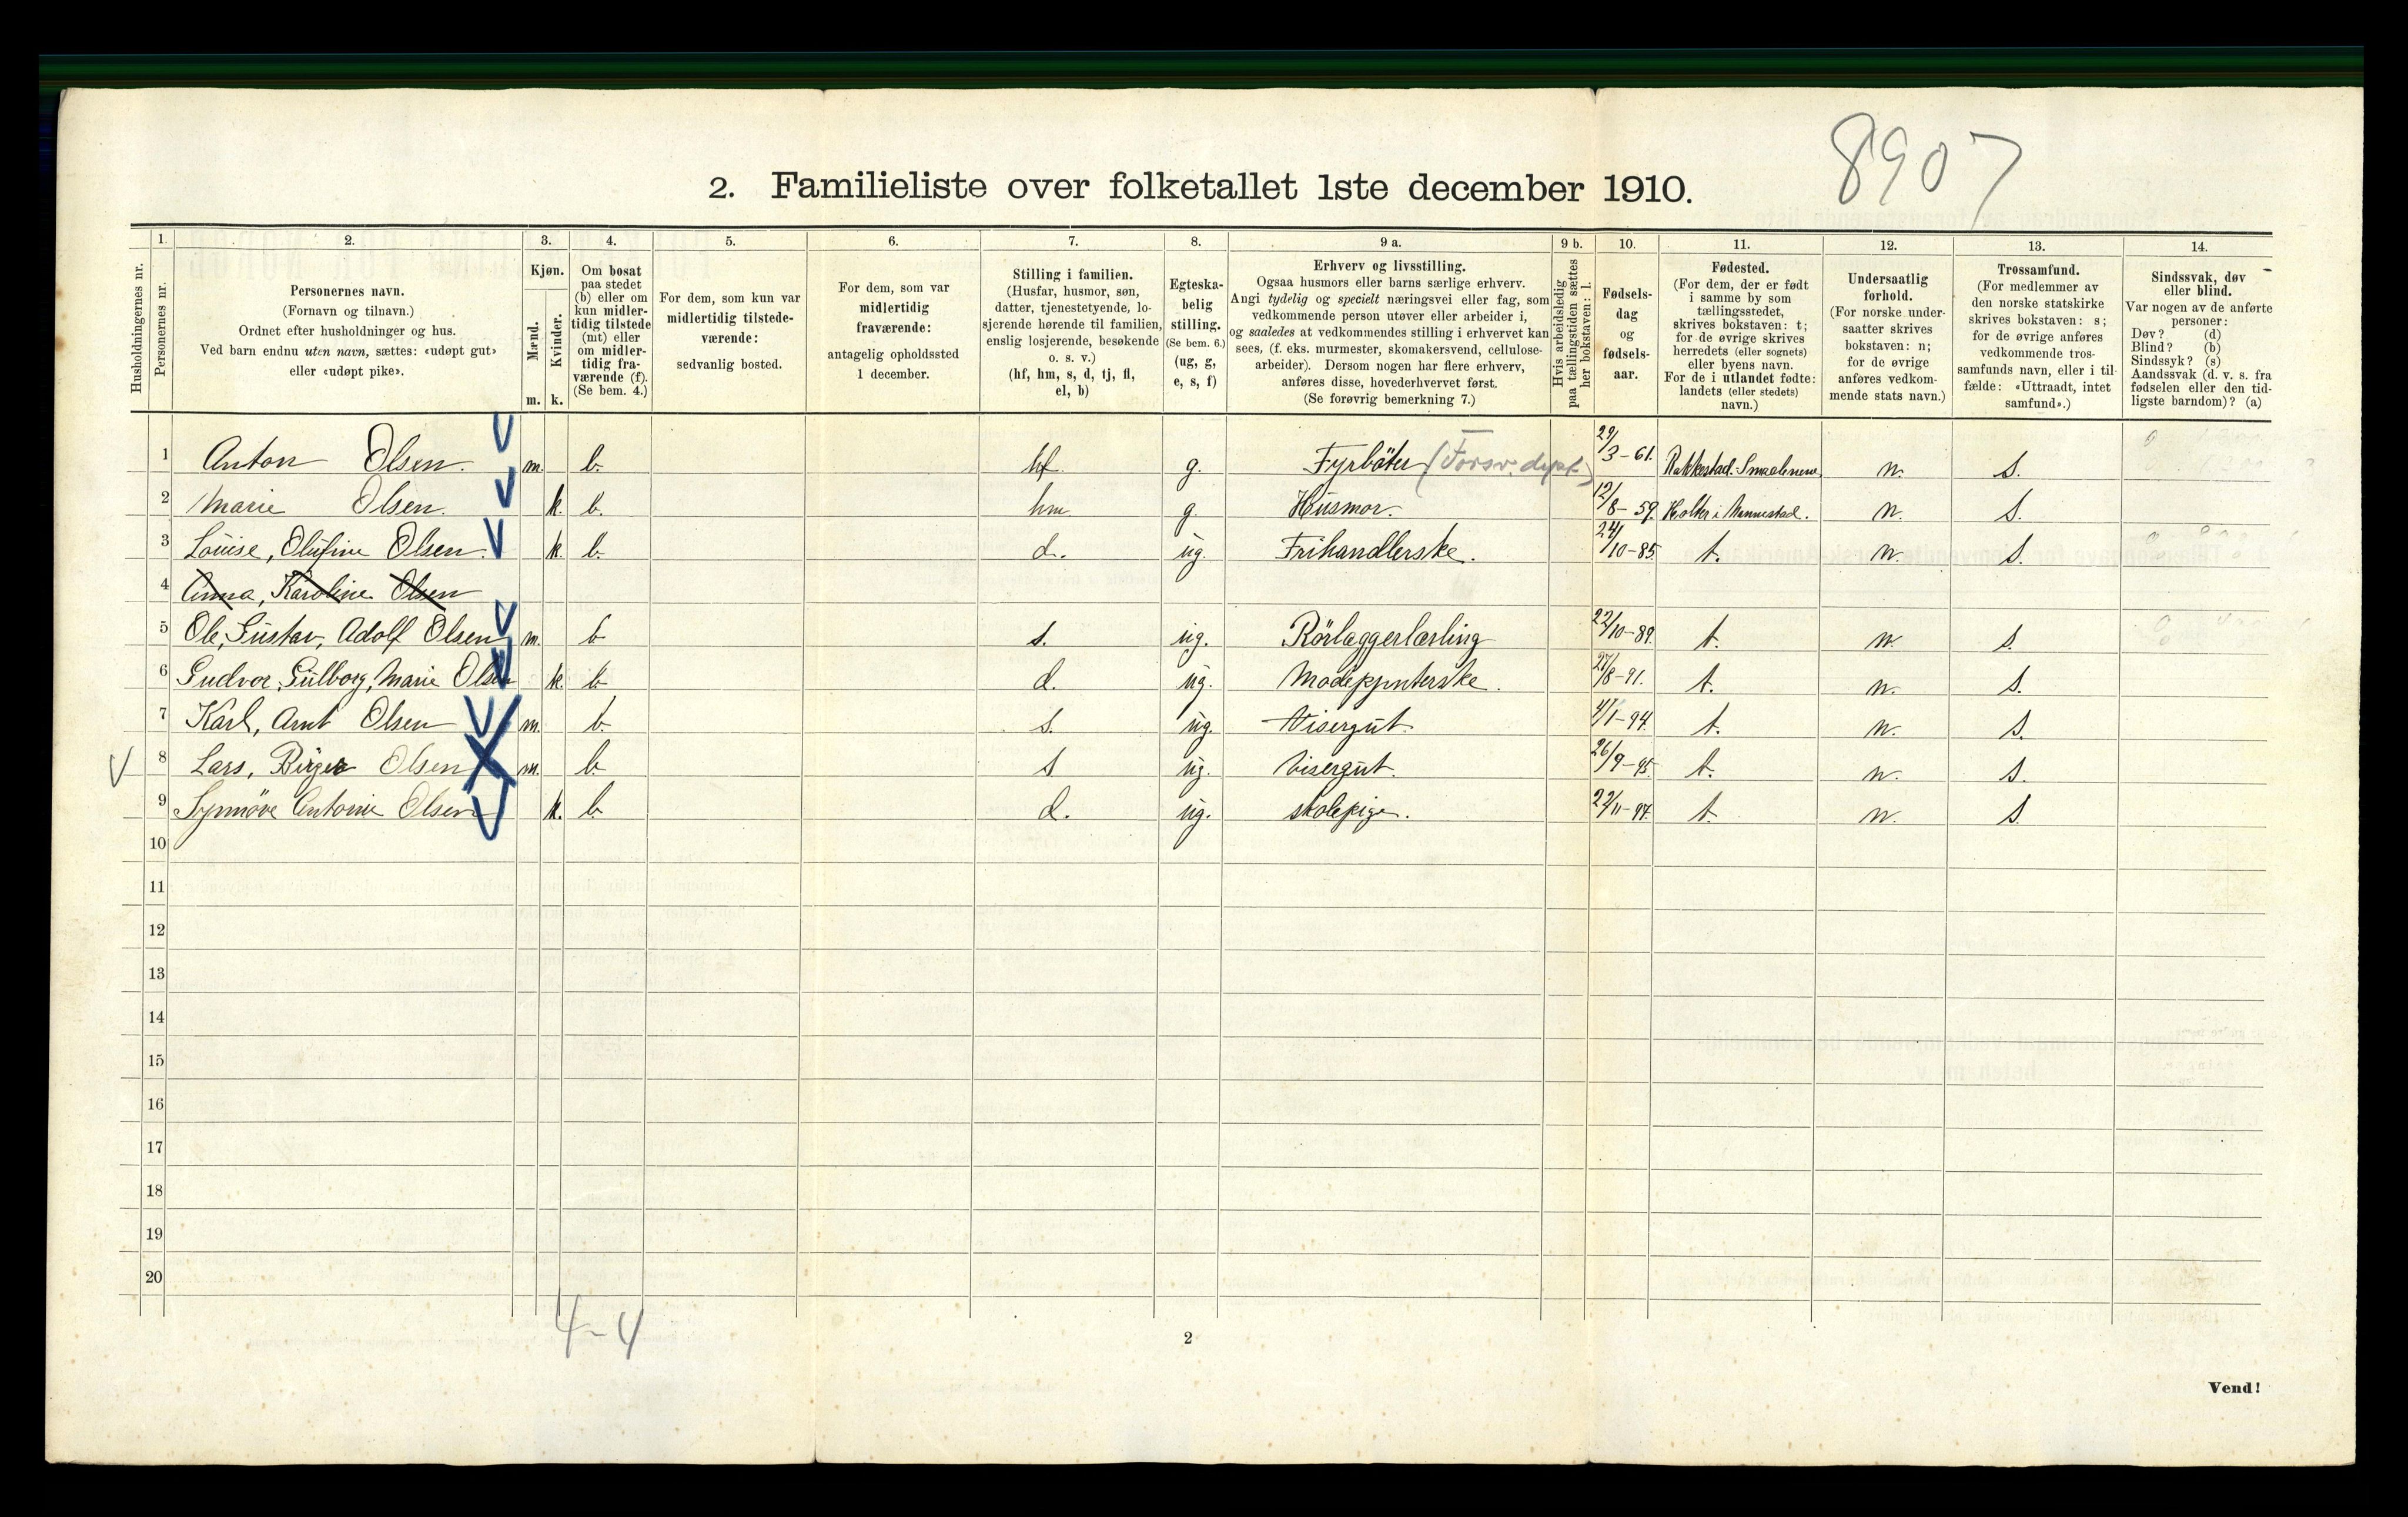 8907
2. Familieliste over folketallet 1ste december 1910.
1. 2. 3. 4. 5. 6. 7. 8. 9 a. 9 b. 10. 11. 12. 13. 14.
Husholdningernes nr.
Personernes nr.
Personernes navn.
(Fornavn og tilnavn.)
Ordnet efter husholdninger og hus.
Ved barn endnu uten navn, sættes: «udøpt gut»
eller «udøpt pike».
Kjøn.
Mænd.
Kvinder.
m. k.
Om bosat
paa stedet
(b) eller om
kun midler-
tidig tilstede
(mt) eller
om midler-
tidig fra-
værende (f).
(Se bem. 4.)
For dem, som kun var
midlertidig tilstede-
værende:
sedvanlig bosted.
For dem, som var
midlertidig
fraværende:
antagelig opholdssted
1 december.
Stilling i familien.
(Husfar, husmor, søn,
datter, tjenestetyende, lo-
sjerende hørende til familien,
enslig losjerende, besøkende
o. s. v.)
(hf, hm, s, d, tj, fl,
el, b)
Egteska-
belig
stilling.
(Se bem. 6.)
(ug, g,
e, s, f)
Erhverv og livsstilling.
Ogsaa husmors eller barns særlige erhverv.
Angi tydelig og specielt næringsvei eller fag, som
vedkommende person utøver eller arbeider i,
og saaledes at vedkommendes stilling i erhvervet kan
sees, (f. eks. murmester, skomakersvend, cellulose-
arbeider). Dersom nogen har flere erhverv,
anføres disse, hovederhvervet først.
(Se forøvrig bemerkning 7.)
Hvis arbeidsledig
paa tællingstiden sættes
her bokstaven: l.
Fødsels-
dag
og
fødsels-
aar.
Fødested.
(For dem, der er født
i samme by som
tællingsstedet,
skrives bokstaven: t;
for de øvrige skrives
herredets (eller sognets)
eller byens navn.
For de i utlandet fødte:
landets (eller stedets)
navn.)
Undersaatlig
forhold.
(For norske under-
saatter skrives
bokstaven: n;
for de øvrige
anføres vedkom-
mende stats navn.)
Trossamfund.
(For medlemmer av
den norske statskirke
skrives bokstaven: s;
for de øvrige anføres
vedkommende tros-
samfunds navn, eller i til-
fælde: «Uttraadt, intet
samfund».)
Sindssvak, døv
eller blind.
Var nogen av de anførte
personer:
Døv? (d)
Blind? (b)
Sindssyk? (s)
Aandssvak (d. v. s. fra
fødselen eller den tid-
ligste barndom)? (a)
1 Anton Olsen. m. b. hf g. Fyrböter (Forsv. dept.) 29/3-61. Rakkestad. Smaalenene n. s.
2 Marie Olsen. k. b. hm g. Husmor. 12/8-59. Holter i Nannestad. n. s.
3 Louise, Olufine Olsen. k. b. d. ug. Frihandlerske. 24/10-85. t. n. s.
4 Anna, Karoline Olsen
5 Ole, Gustav, Adolf Olsen m. b. s. ug. Rörlæggerlærling 22/10-89. t. n. s.
6 Gudvor, Gulborg, Marie Olsen k. b. d. ug. Modepynterske. 27/8-91. t. n. s.
7 Karl, Arnt Olsen m. b. s. ug. Visergut. 4/1-94. t. n. s.
8 Lars, Birger Olsen m. b. s ug. Visergut. 26/9-95. t. n. s.
9 Synnöve Antonie Olsen k. b. d. ug. skolepige. 22/11-97. t. n. s.
10
11
12
13
14
15
16
17
18
19
20
4-4
2
Vend!